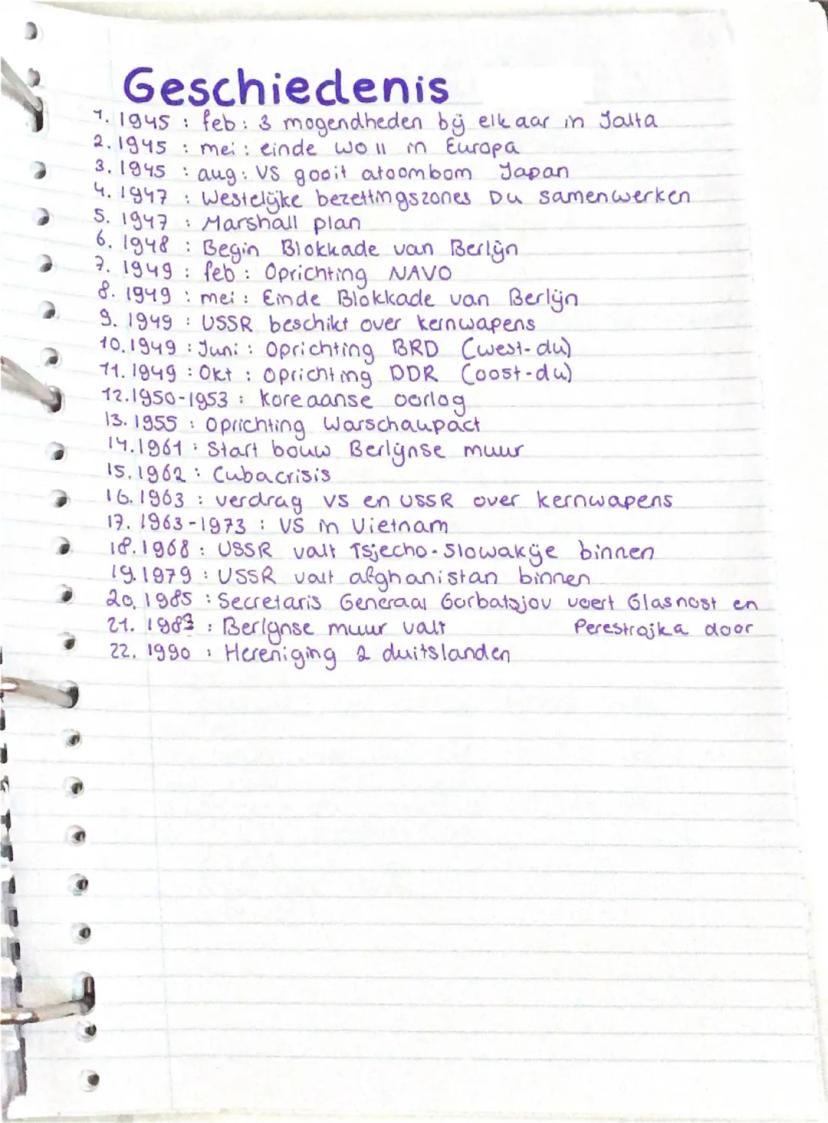 Geschiedenis
1. 1945 : feb : 3 mogendheden bij elkaar in Jalta
2. 1945 : mei : einde WO II in Europa
3. 1945 : aug : VS gooit atoombom Japan
4. 1947 : Westelijke bezettingszones Du samenwerken
5. 1947 : Marshall plan
6. 1948 : Begin Blokkade van Berlijn
7. 1949 : feb : Oprichting NAVO
8. 1949 : mei : Einde Blokkade van Berlijn
9. 1949 : USSR beschikt over kernwapens
10. 1949 : Juni : Oprichting BRD (west-du)
11. 1949 : Okt : Oprichting DDR (oost-du)
12. 1950-1953 : Koreaanse oorlog
13. 1955 : Oprichting Warschaupact
14. 1961 : Start bouw Berlijnse muur
15. 1962 : Cubacrisis
16. 1963 : verdrag VS en USSR over kernwapens
17. 1963-1973 : VS in Vietnam
18. 1968 : USSR valt Tsjecho-Slowakije binnen
19. 1979 : USSR valt afghanistan binnen
20. 1985 : Secretaris Generaal Gorbatsjov voert Glasnost en
21. 1989 : Berlijnse muur valt Perestrojka door
22. 1990 : Hereniging 2 duitslanden